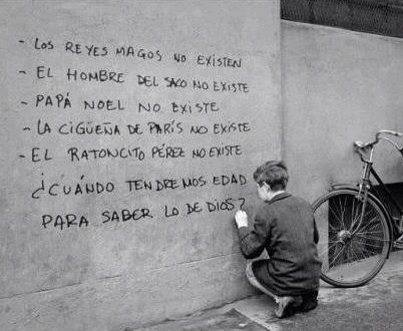 - LOS REYES MAGOS NO EXISTEN
- EL HOMBRE DEL SACO NO EXISTE
- PAPÁ NOEL NO EXISTE
- LA CIGÜEÑA DE PARÍS NO EXISTE
- EL RATONCITO PÉREZ NO EXISTE
¿CUÁNDO TENDREMOS EDAD
PARA SABER LO DE DIOS?